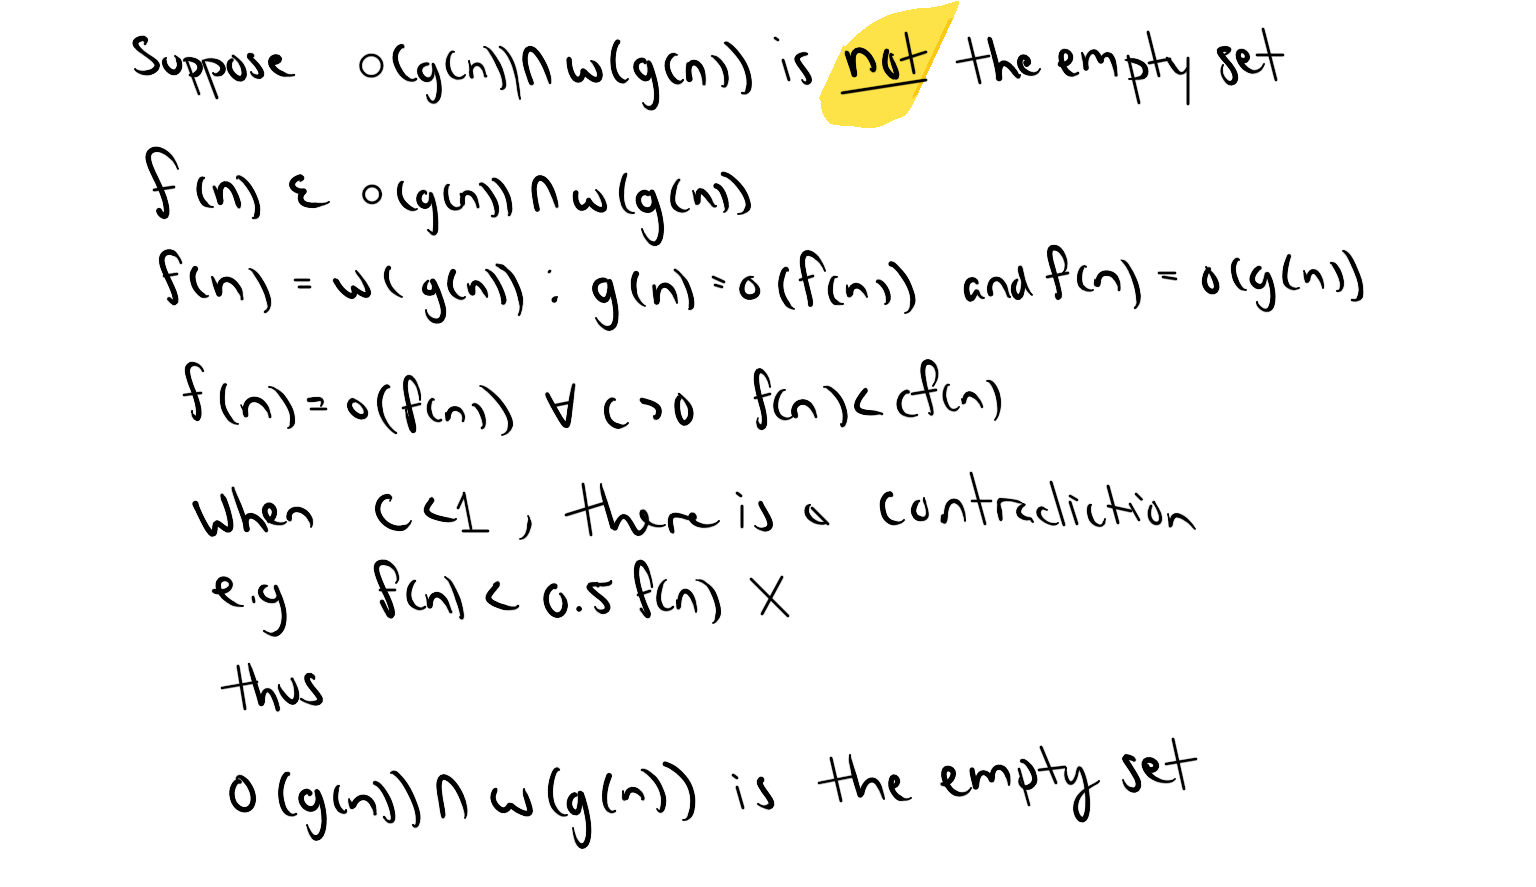 Suppose o(g(n)) ∩ w(g(n)) is not the empty set
f(n) ε o(g(n)) ∩ w(g(n))
f(n) = w(g(n)) : g(n) = o(f(n)) and f(n) = o(g(n))
f(n) = o(f(n)) ∀ c > 0 f(n) < cf(n)
when c < 1, there is a contradiction
e.g f(n) < 0.5 f(n) X
thus
o(g(n)) ∩ w(g(n)) is the empty set